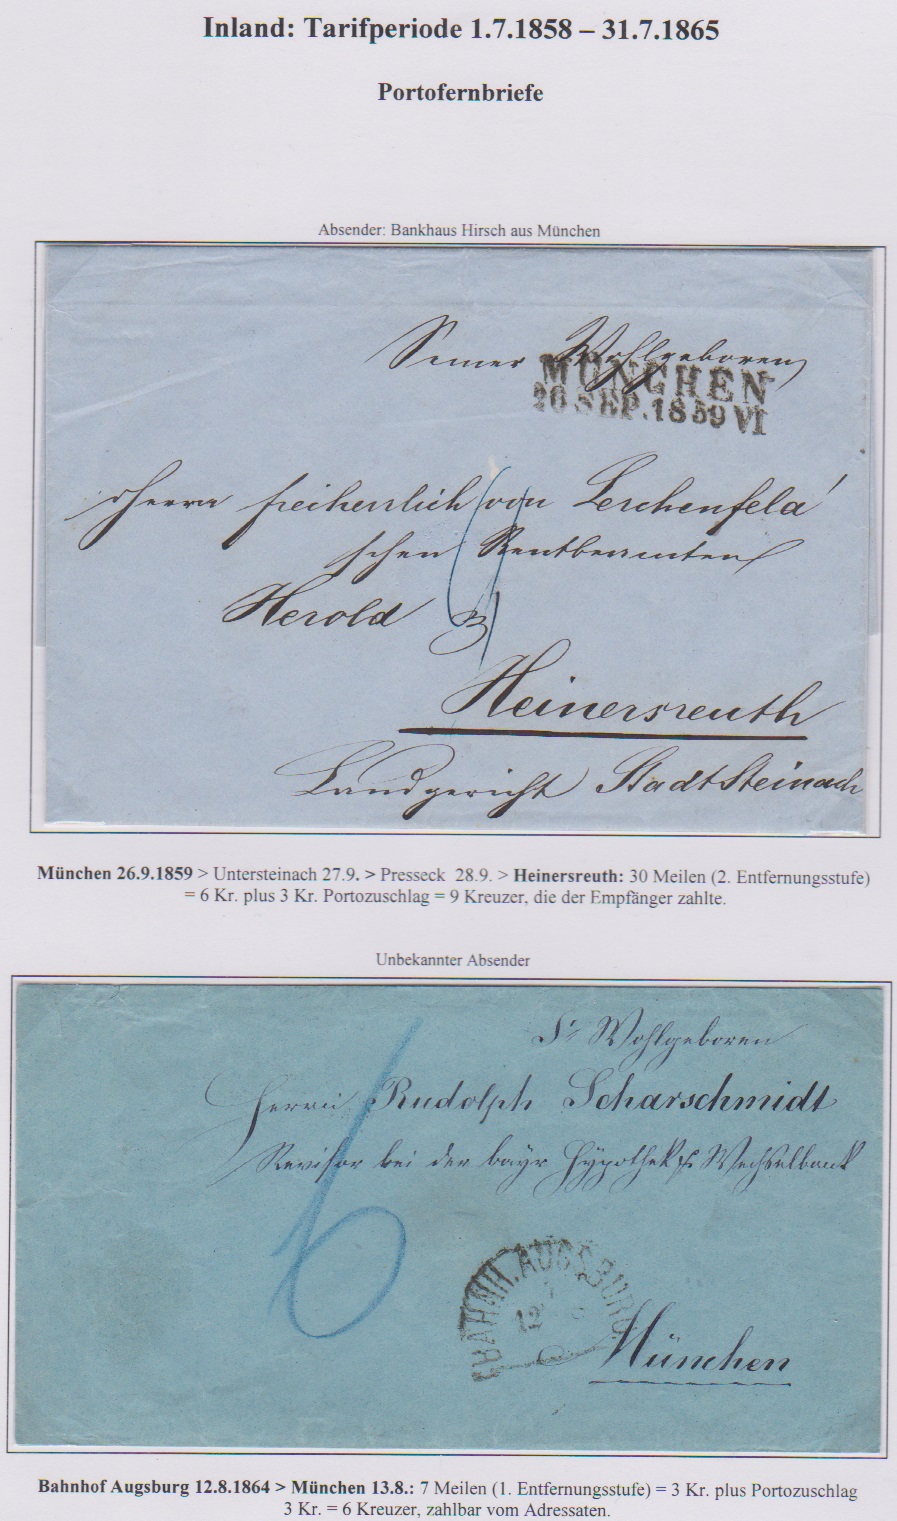 Inland: Tarifperiode 1.7.1858 – 31.7.1865
Portofernbriefe
Absender: Bankhaus Hirsch aus München
Seiner Wohlgeboren
MÜNCHEN
26 SEP. 1859 VI
Herrn freiherrlich von Lerchenfeld'
schen Rentbeamten
Herold
9
Heinersreuth
Landgericht Stadtsteinach
München 26.9.1859 > Untersteinach 27.9. > Presseck 28.9. > Heinersreuth: 30 Meilen (2. Entfernungsstufe)
= 6 Kr. plus 3 Kr. Portozuschlag = 9 Kreuzer, die der Empfänger zahlte.
Unbekannter Absender
Sr Wohlgeboren
Herrn Rudolph Scharschmidt
Revisor bei der bayr Hypothek Wechselbank
6
BAHNH. AUGSBURG
12 8
München
Bahnhof Augsburg 12.8.1864 > München 13.8.: 7 Meilen (1. Entfernungsstufe) = 3 Kr. plus Portozuschlag
3 Kr. = 6 Kreuzer, zahlbar vom Adressaten.